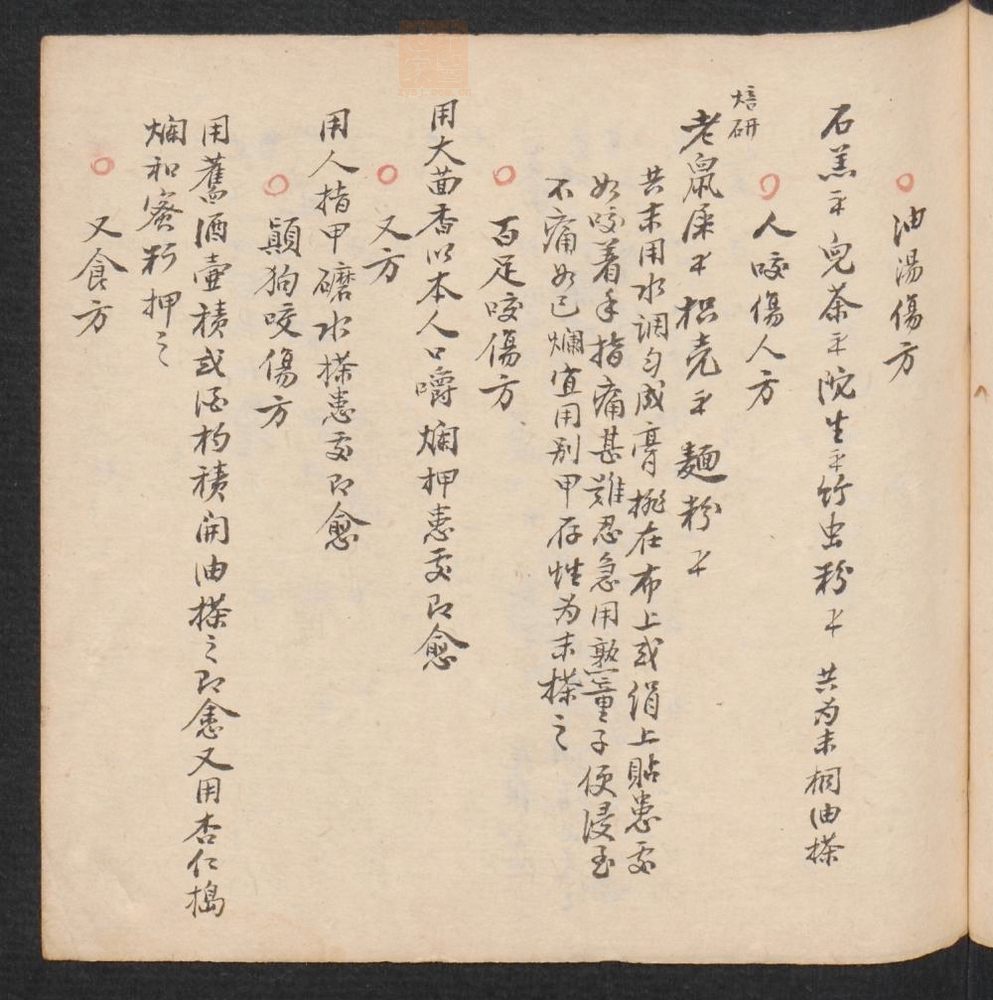 油湯傷方
石羔 兒茶 院生 竹虫粉 共为末桐油搽
人咬傷人方
焙研
老鼠屎 枳壳 麵粉
共末用水调匀成膏摊在布上或绢上貼患處
如咬着手指痛甚难忍急用熟童子便浸至
不痛如已爛宜用别甲存性为末搽之
百足咬傷方
用大茴香以本人口嚼爛押患處即愈
又方
用人指甲磨水搽患處即愈
顛狗咬傷方
用舊酒壷積或酒杓積開油搽之即愈又用杏仁搗
爛和蜜押之
又食方